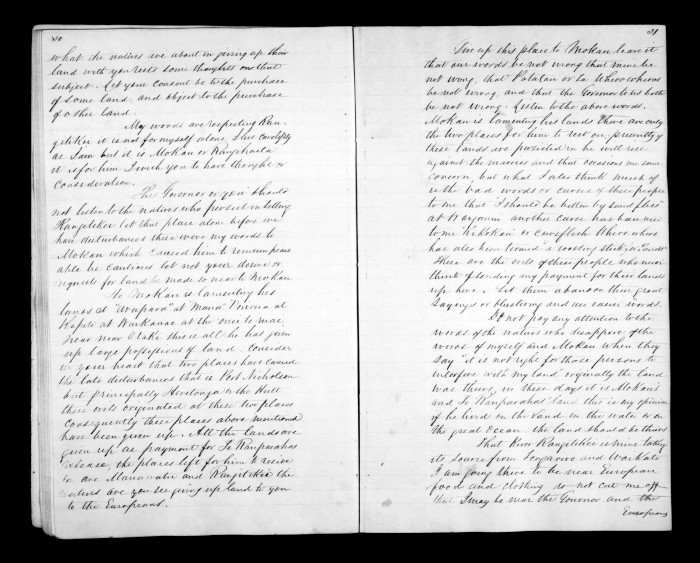 30
what the natives are about in giving up their
land with you rests some thoughts on that
subject. Let your consent be to the purchase
of some land, and object to the purchase
of other land.
My words are respecting Ran-
gitikei it is not for myself alone I live carelessly
as I am but it is Mokau & Rangihaeata
it is for him I wish you to have thought or
consideration.
The Governor or you should
not listen to the natives who persist in selling
Rangitikei let that place alone before we
have disturbances these were my words to
Mokau which caused him to
be cautious let not your desire or
requests for land be made so near to Mokau
He Mokau is lamenting his
lands at at Mana Porirua at
Kapiti at Waikanae at the
near near Otaki this is all he has given
up large possessions of land. Consider
in your heart that two places have caused
the late disturbances that is Port Nicholson
but principally Heretonga or the Hutt
these evils originated at these two places
consequently these places above mentioned
have been given up. All the lands are
given up as payment for Te Rauparahas
release, the places left for him to reside
on are Manawatu and Rangitikei the
natives are you see giving up land to you
to the Europeans.
31
Give up this place to Mokau leave it
that our words be not wrong that mine be
not wrong, that or Te
be not wrong, and that the Governor to us both
be not wrong. Listen to the above words.
Mokau is lamenting his lands there are only
the two places for him to rest on, presently if
these lands are persisted in he will rise
against the maories and that occasions me some
concern, but what I also think much of
is the bad words or curses of these people
to me that "I should be bitten by sand flies"
at another curse has been
to me or Whero where
has also been termed "a roasting stick or"
These are the evils of these people who never
think of sending any payment for their lands
up here. Let them abandon their great
sayings or blustering and use easier words.
Do not pay any attention to the
words of the natives who disapprove of the
words of myself and Mokau when they
say "it is not right for those persons to
interfere with my land" originally the land
was theirs, in these days it is Mokau's
and Te Rauparahas' land this is my opinion
if he lived on the land in the water or on
the great Ocean the land should be theirs
That River Rangitikei is mine taking
its source from and
I am going there to be near European
food and clothing do not cut me off
that I may be near the Governor and the
Europeans